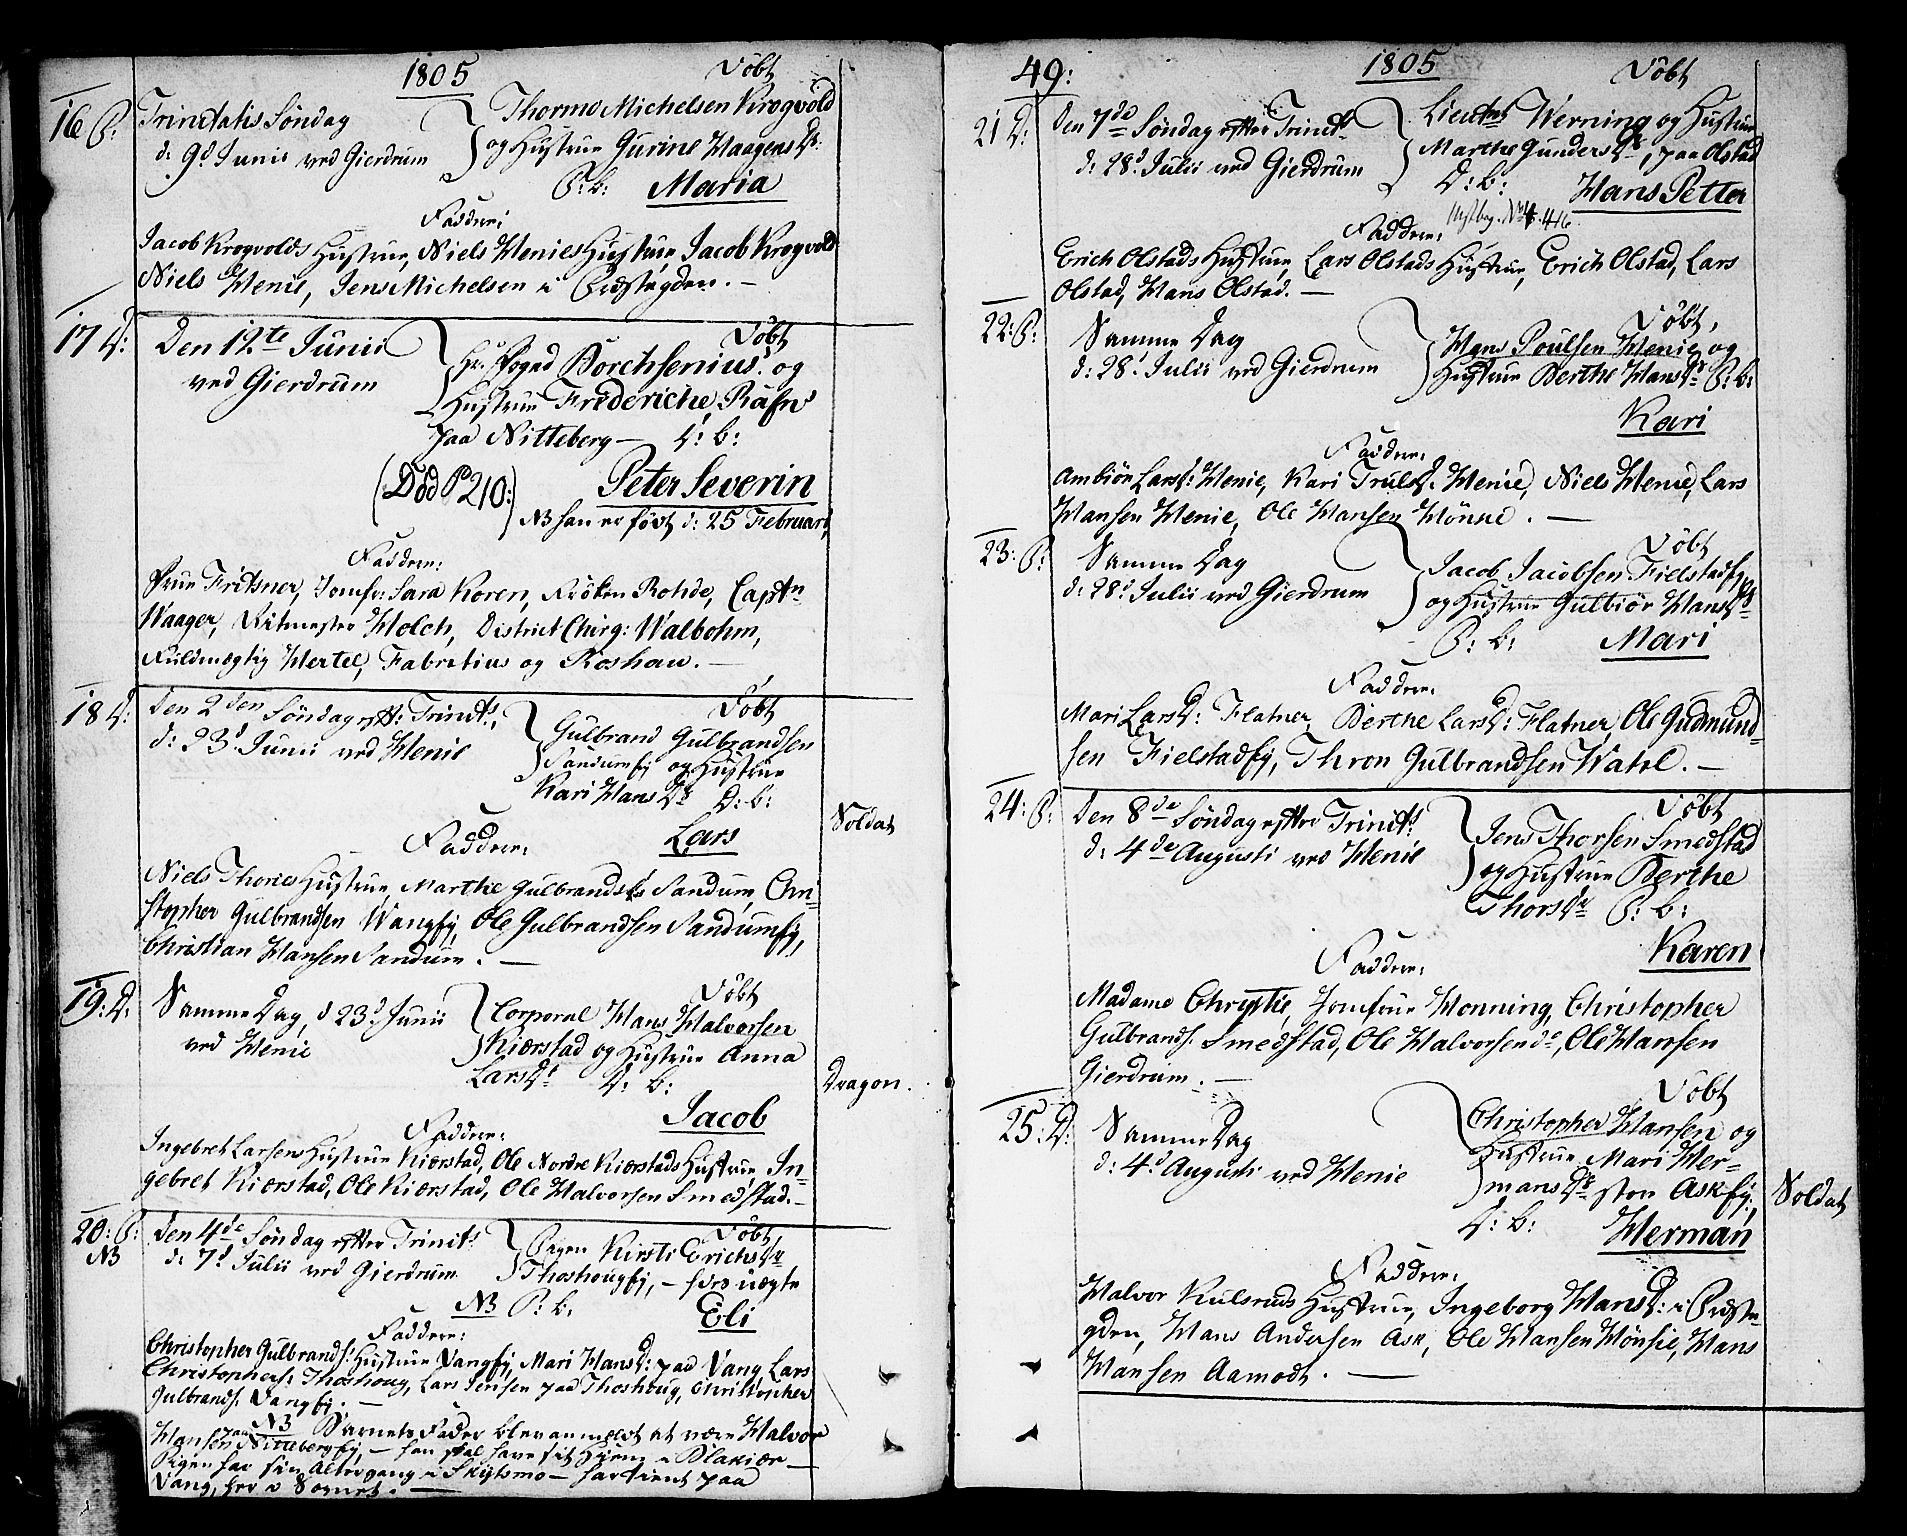 1805
Døbt
16 P:
Trinitatis Søndag
d: 9d Junii ved Gierdrum
Thormo Michelsen Krogvold
og Hustrue Gurine Haagensdr:
P: b: Maria
Faddere:
Jacob Krogvolds Hustrue, Niels Henies Hustrue, Jacob Krogvold
Niels Henie, Jens Michelsen i Præstegden. —
17 D:
Den 12te Junii
ved Gierdrum
Døbt
Hr: Foged Borchsenius. og
Hustrue Frideriche Rafn
paa Nitteberg — D: b:
(Död P 210:)
Peter Severin
NB han er født d: 25 Februari,
Faddere:
Frue Fritsner, Jomfr: Sara Koren, Frøken Rohde, Captn
Waager, Ritmester Holch, District Chirg: Walbohm,
Fuldmægtig Hertel, Fabritius og Roshau. —
18 D:
Den 2den Søndag eft: Trinits
d: 23d Junii ved Henie
Døbt
Gulbrand Gulbrandsen
Sandumfj og Hustrue
Kari Hansdr D: b:
Soldat
Faddere:
Lars
Niels Thories Hustrue, Marthe Gulbrandsdr Sandum, Chri-
stopher Gulbrandsen Wangfj, Ole Gulbrandsen Sandumfj,
Christian Hansen Sandum. —
19: D.
Samme Dag, d 23d Junii
ved Henie
Døbt
Corporal Hans Halvorsen
Kierstad og Hustrue Anna
Larsdr D: b:
Dragon.
Jacob
Faddere:
Ingebret Larsens Hustrue Kierstad, Ole Nordre Kierstads Hustrue, In-
gebret Kierstad, Ole Kierstad, Ole Halvorsen Smedstad. —
20: P:
NB
Den 4de Søndag efter Trinits
d: 7d Julii ved Gierdrum
Døbt,
Pigen Kirsti Erichsdr
Thoshougfj, — for uægte
NB P: b.
Eli
Faddere:
Christopher Gulbrands: Hustrue Vangfj, Mari Hansd: paa Vang, Lars
Christophers: Thoshoug, Lars Jensen paa Thoshoug, Christopher
Gulbrands. Vangfj. —
NB Barnets Fader blev anmeldt at være Halvor
Hansen paa Nittebergfj, — han skal have sit Hjem i Blakiær —
Pigen har sin Altergang i Skijtsmo — har tient paa
Vang, her i Sognet. —
49:
1805
Døbt
21 D:
Den 7de Søndag efter Trinits
d: 28d Julii ved Gierdrum
Lieutnt Werning og Hustrue
Marthe Gundersdr, paa Olstad
D: b: Hans Petter
Faddere:
Erich Olstads Hustrue, Lars Olstads Hustrue, Erich Olstad, Lars
Olstad, Hans Olstad. —
22: P:
Samme Dag
d: 28d Julii ved Gierdrum
Døbt,
Hans Poulsen Henie og
Hustrue Berthe Hansdr P: b:
Kari
Faddere:
Ambiör Larsd: Henie, Kari Trulsd: Henie, Niels Henie, Lars
Hansen Henie, Ole Hansen Hönsie. —
23: P:
Samme Dag
d: 28d Julii ved Gierdrum
Døbt
Jacob Jacobsen Fielstadfj
og Hustrue Gulbiör Hansdr
P: b: Mari
Faddere:
Mari Larsd: Flatner, Berthe Larsd: Flatner, Ole Gudmund-
sen Fielstadfj, Thron Gulbrandsen Wahl. —
24: P.
Den 8de Søndag efter Trinits
d: 4de Augusti ved Henie
Døbt
Jens Thorsen Smedstad
og Hustrue Berthe
Thorsdr P: b:
Karen
Faddere:
Madame Chrystie, Jomfrue Monning, Christopher
Gulbrands. Smedstad, Ole Halvorsen de, Ole Hansen
Gierdrum. —
25: D:
Samme Dag
d: 4d Augusti ved Henie
Døbt
Christopher Hansen og
Hustrue Mari Her-
mansdr Askfj,
Soldat
D: b: Herman
Faddere:
Halvor Kulsruds Hustrue, Ingeborg Hansd: i Præste-
gden, Hans Andersen Ask, Ole Hansen Hönsie, Hans
Hansen Aamodt. —